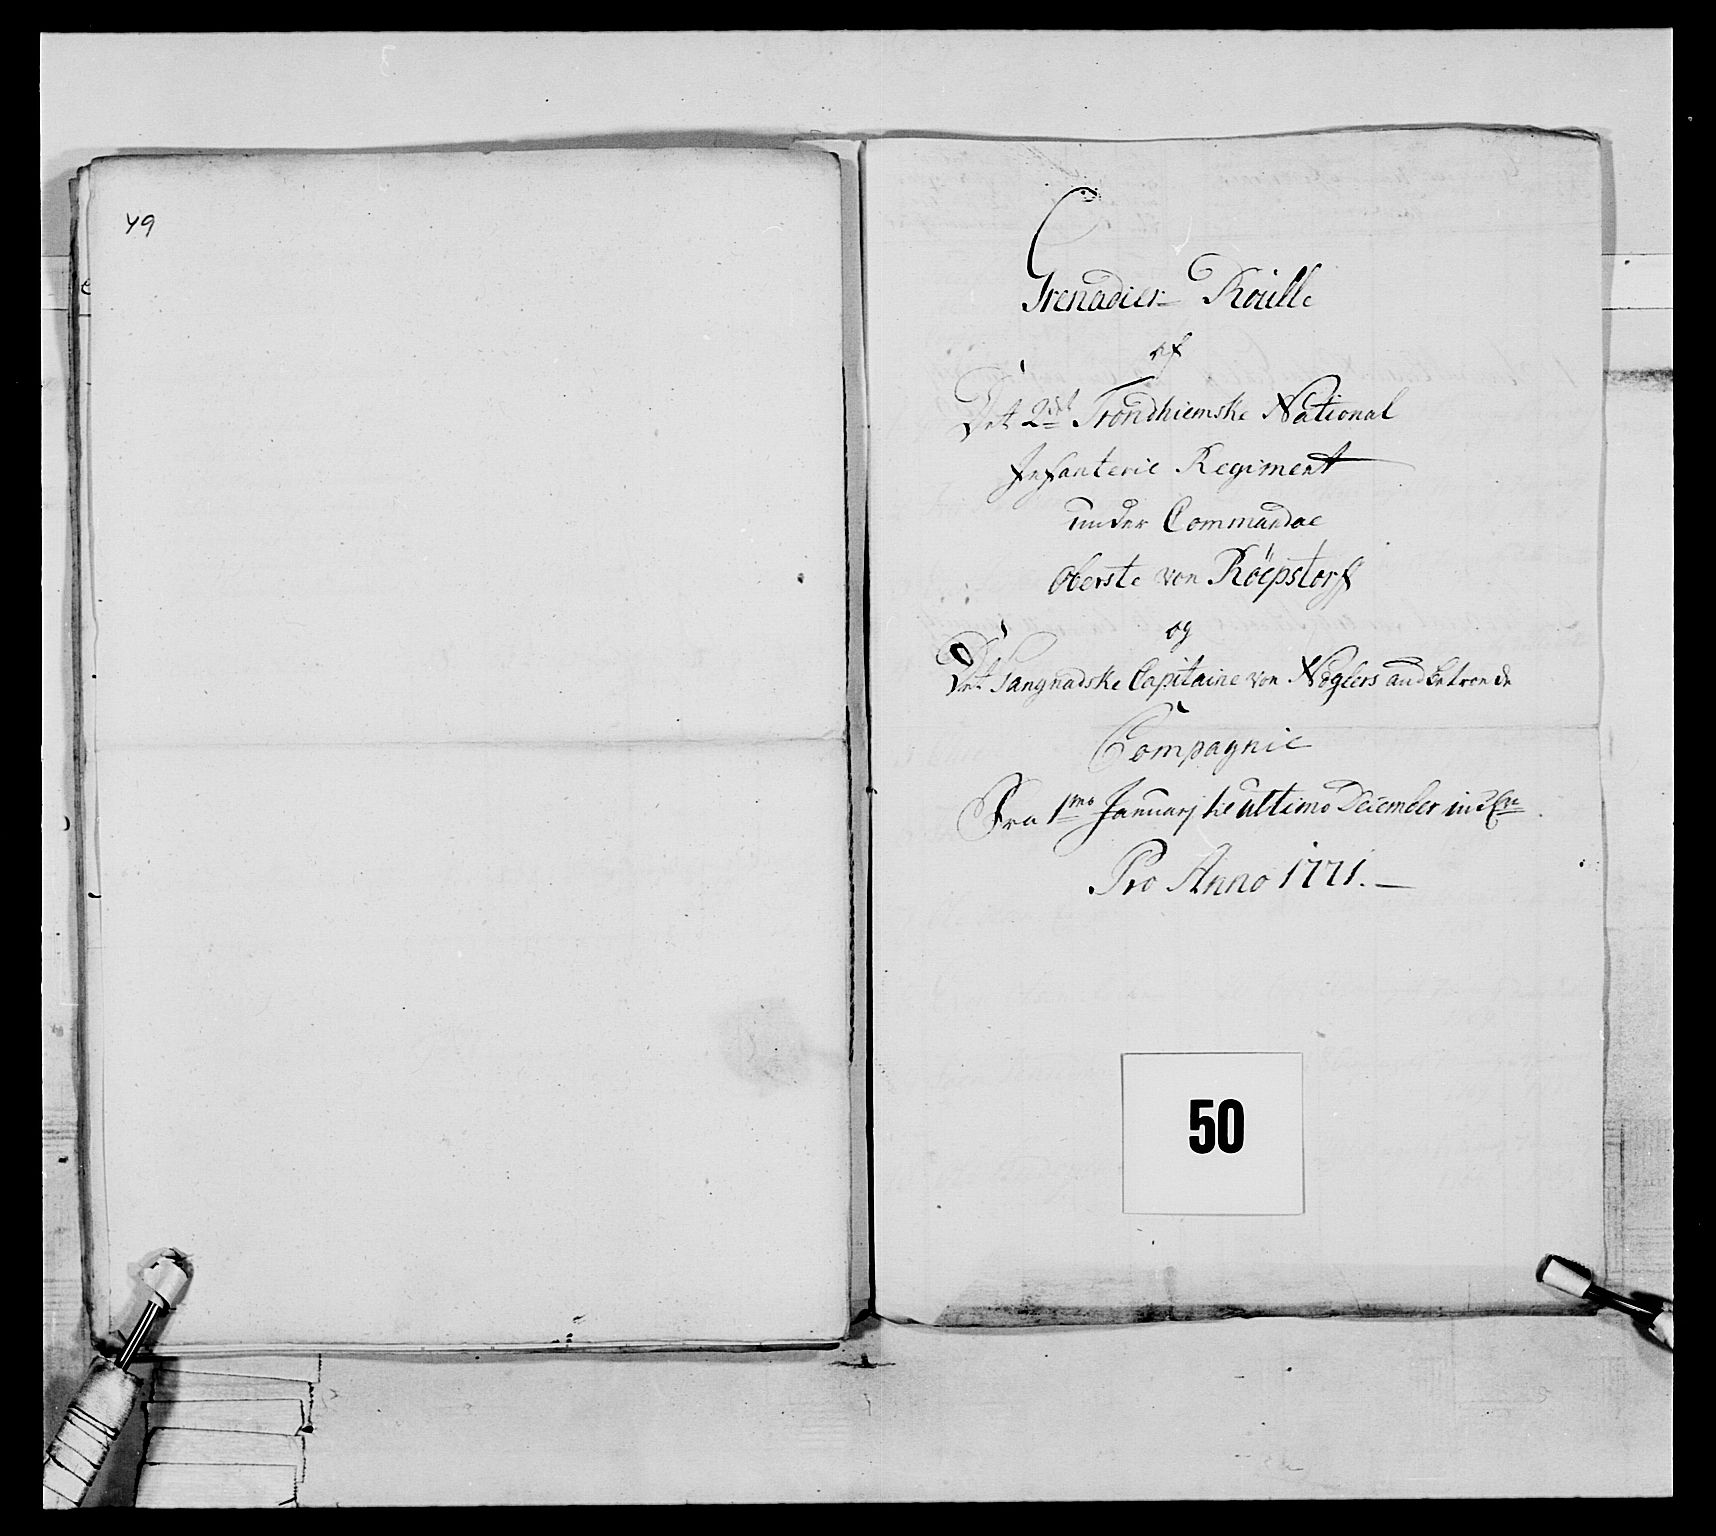 49
Grenadier Roulle
af
Det 2det Trondhiemske National
Infanterie Regiment
under Commando
Oberste von Röepstorff
og
Det Sangnadske Capitaine von Nøglers andbetroede
Compagnie
Fra 1mo Januarj til ultimo December incl
Pro Anno 1771.
50